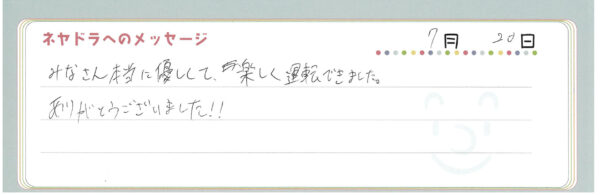 ネヤドラへのメッセージ 7月 20日
みなさん本当に優しくて、楽しく運転できました。
ありがとうございました!!